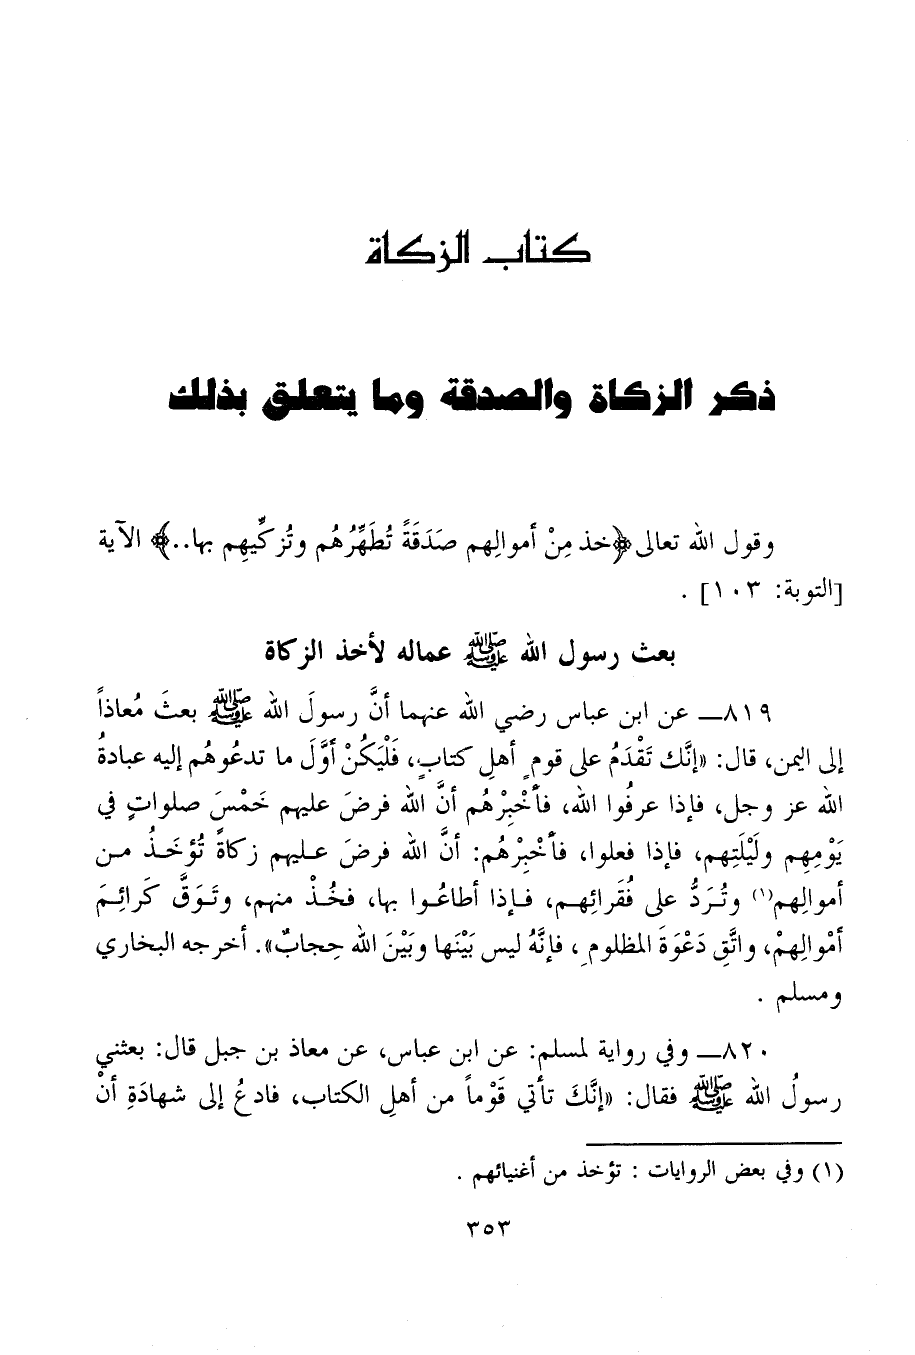 كتاب الزكاة
ذكر الزكاة والصدقة وما يتعلق بذلك
وقول الله تعالى ﴿خذ مِنْ أموالِهم صَدَقَةً تُطَهِّرُهُم وتُزكِّيهِم بها..﴾ الآية
[التوبة: ١٠٣] .
بعث رسول الله ﷺ عماله لأخذ الزكاة
٨١٩ــ عن ابن عباس رضي الله عنهما أنَّ رسولَ الله ﷺ بعثَ مُعاذاً
إلى اليمن، قال: «إنَّك تَقْدَمُ على قومٍ أهلِ كتابٍ، فَلْيَكُنْ أوَّلَ ما تدعُوهُم إليه عبادةُ
الله عز وجل، فإذا عرفُوا الله، فأَخْبِرْهُم أنَّ الله فرضَ عليهم خَمْسَ صلواتٍ في
يَوْمِهِم ولَيْلَتِهِم، فإذا فعلوا، فأَخْبِرْهُم: أنَّ الله فرضَ عليهم زكاةً تُؤخَذُ من
أموالِهم(١) وتُرَدُّ على فُقَرائِهم، فإذا أطاعُوا بها، فخُذْ منهم، وتَوَقَّ كَرائِمَ
أمْوالِهمْ، واتَّقِ دَعْوَةَ المظلومِ، فإنَّهُ ليس بَيْنَها وبَيْنَ الله حِجابٌ». أخرجه البخاري
ومسلم .
٨٢٠ــ وفي رواية لمسلم: عن ابن عباس، عن معاذ بن جبل قال: بعثني
رسولُ الله ﷺ فقال: «إنَّكَ تأتي قَوْماً من أهلِ الكتاب، فادعُ إلى شهادَةِ أنْ
(١) وفي بعض الروايات : تؤخذ من أغنيائهم .
٣٥٣